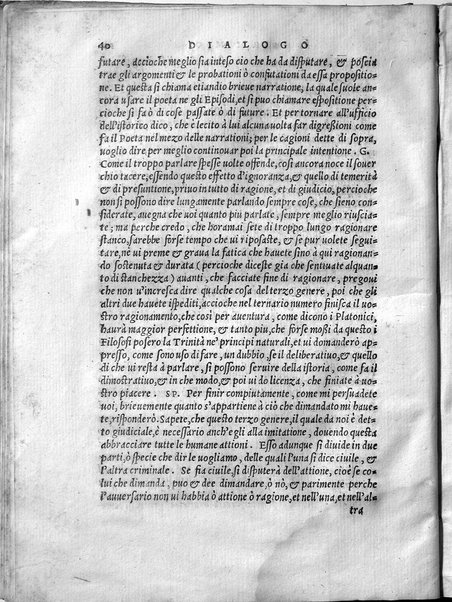 40 DIALOGO
futare, accioche meglio sia inteso cio che ha da disputare, & poscia
trae gli argomenti & le probationi ò confutationi da essa propositio-
ne. Et questa si chiama etiandio brieue narratione, la quale suole an-
cora usare il poeta ne gli Episodi, et si puo chiamare espositione per-
cioche si fa ò di cose passate ò di future. Et per tornare all'ufficio
dell'istorico dico, che è lecito à lui alcuna uolta far digreßioni come
fa il Poeta nel mouimento, & per le cagioni dette di sopra,
uoglio dire per meglio continouar poi la principale intentione. G.
Come il troppo parlare spesse uolte offende, cosi ancora noce il souer
chio tacere, essendo questo effetto d'ignoranza, & quello di temerità
& di presuntione, priuo in tutto di ragione, et di giudicio, percioche
non si possono dire lungamente parlando sempre cose, che sieno con-
siderate, auegna che uoi quanto piu parlate, sempre meglio riuscia-
te; ma perche credo, che horamai sete di troppo lungo ragionare
stanco, sarebbe forse tempo che ui riposaste, & se pur uolete segui-
tare, nè ui preme & graua la fatica che hauete sino à qui ragionan-
do sostenuta & durata (percioche diceste gia che sentiuate alquan-
to di stanchezza) auanti, che facciate fine di ragionare, pregoui
che non u'incresca dire qualche cosa del terzo genere, poi che gli
altri due hauete ispediti, accioche nel ternario numero finisca il uo-
stro ragionamento, che cosi per auentura, come dicono i Platonici,
haurà maggior perfettione, & tanto piu, che forse moßi da questo i
Filosofi posero la Trinità ne' principi naturali, et ui domanderò ap-
presso, come sono uso di fare, un dubbio, se il deliberatiuo, & quello
di che ui resta à parlare, si possono seruire della istoria, come fa il
dimostratiuo, & in che modo, & poi ui do licenza, che finiate à uo-
stro piacere. SP. Per finir compiutamente, come mi persuadete
uoi, brieuemente quanto s'appartiene à ciò che dimandato mi haue-
te, risponderò. Sapete, che questo terzo genere, il quale da noi è det-
to giudiciale, è necessario anch'egli alla imitatione, douendo questa
abbracciare tutte le humane attioni. Esso adunque si diuide in due
parti, ò spetie che dir le uogliamo, delle quali l'una si dice ciuile, &
l'altra criminale. Se fia ciuile, si disputerà dell'attione, cioè se co-
lui che dimanda, puo & dee dimandare, ò nò, & parimente perche
l'auuersario non ui habbia ò attione ò ragione, et nell'una, et nell'al-
tra